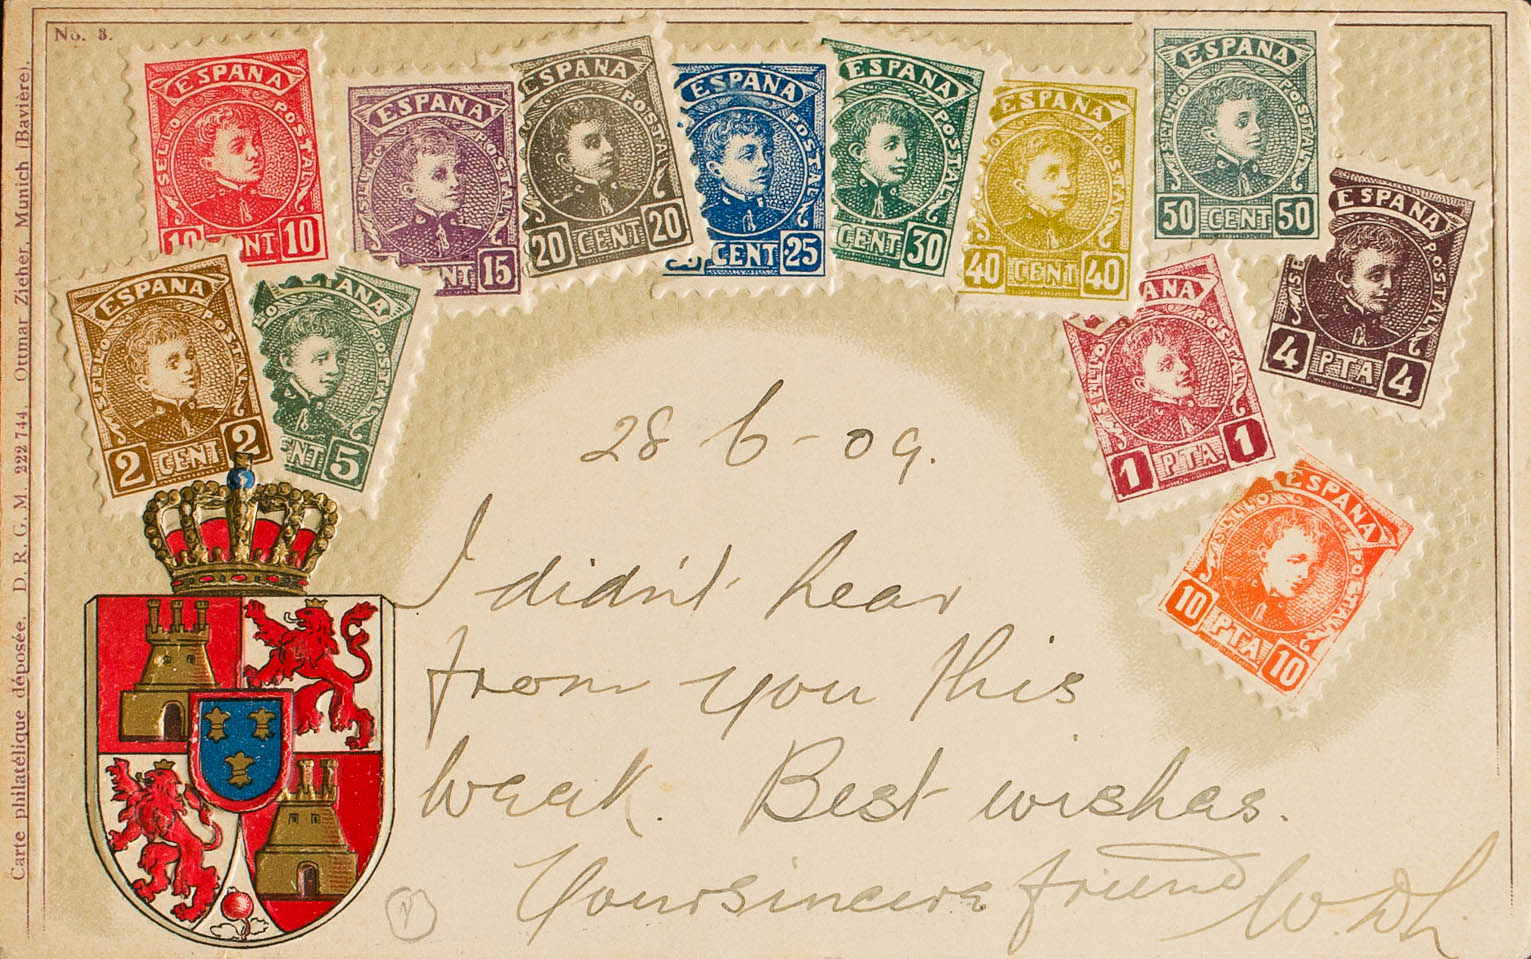 No. 8.
Carte philatélique déposée. D. R. G. M. 222 744. Ottmar Zieher, Munich (Bavière).
ESPAÑA
SELLO POSTAL
10 CENT 10
ESPAÑA
SELLO POSTAL
CENT 15
ESPAÑA
POSTAL
20 CENT 20
ESPAÑA
POSTAL
CENT 25
ESPAÑA
POSTAL
CENT 30
ESPAÑA
POSTAL
40 CENT 40
ESPAÑA
SELLO POSTAL
50 CENT 50
ESPAÑA
POSTAL
4 PTA 4
ESPAÑA
SELLO POSTAL
2 CENT 2
POSTAL
CENT 5
SELLO POSTAL
1 PTA. 1
ESPAÑA
SELLO POSTAL
10 PTA 10
28 6-09.
I didn't hear
from you this
week. Best wishes.
Your sincere friend